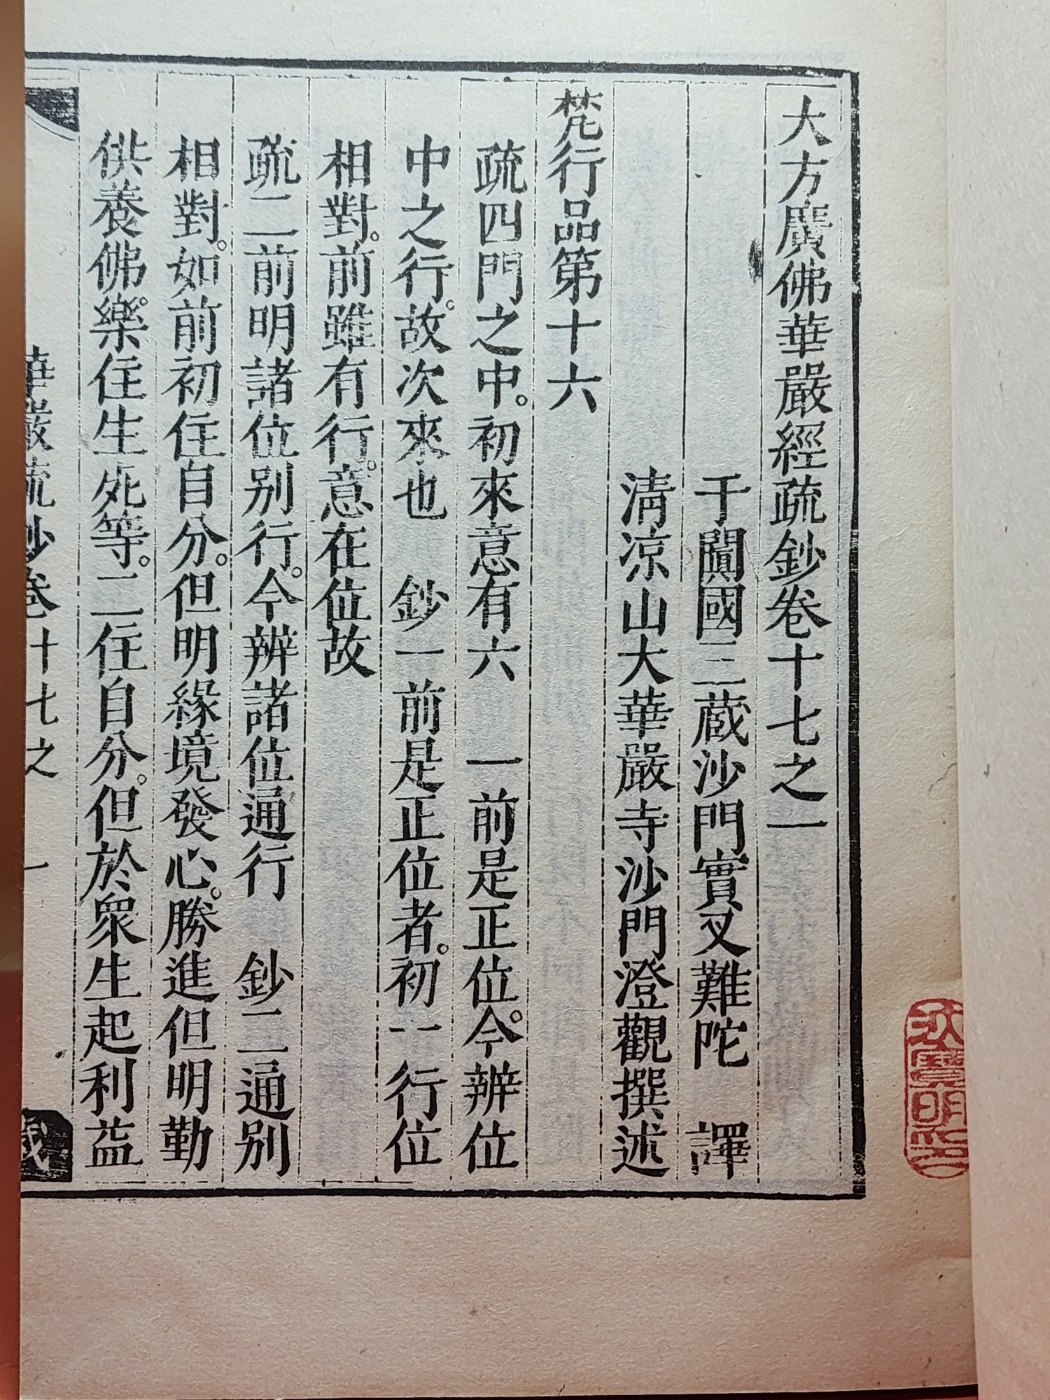 大方廣佛華嚴經疏鈔卷十七之一
于闐國三藏沙門實叉難陀　譯
清凉山大華嚴寺沙門澄觀撰述
梵行品第十六
疏四門之中。初來意有六　一前是正位。今辨位
中之行。故次來也　鈔一前是正位者。初一行位
相對。前雖有行。意在位故
疏二前明諸位别行。今辨諸位通行　鈔二通别
相對。如前初住自分。但明緣境發心。勝進但明勤
供養佛。樂住生死等。二住自分。但於衆生起利益
華嚴疏鈔卷十七之　一